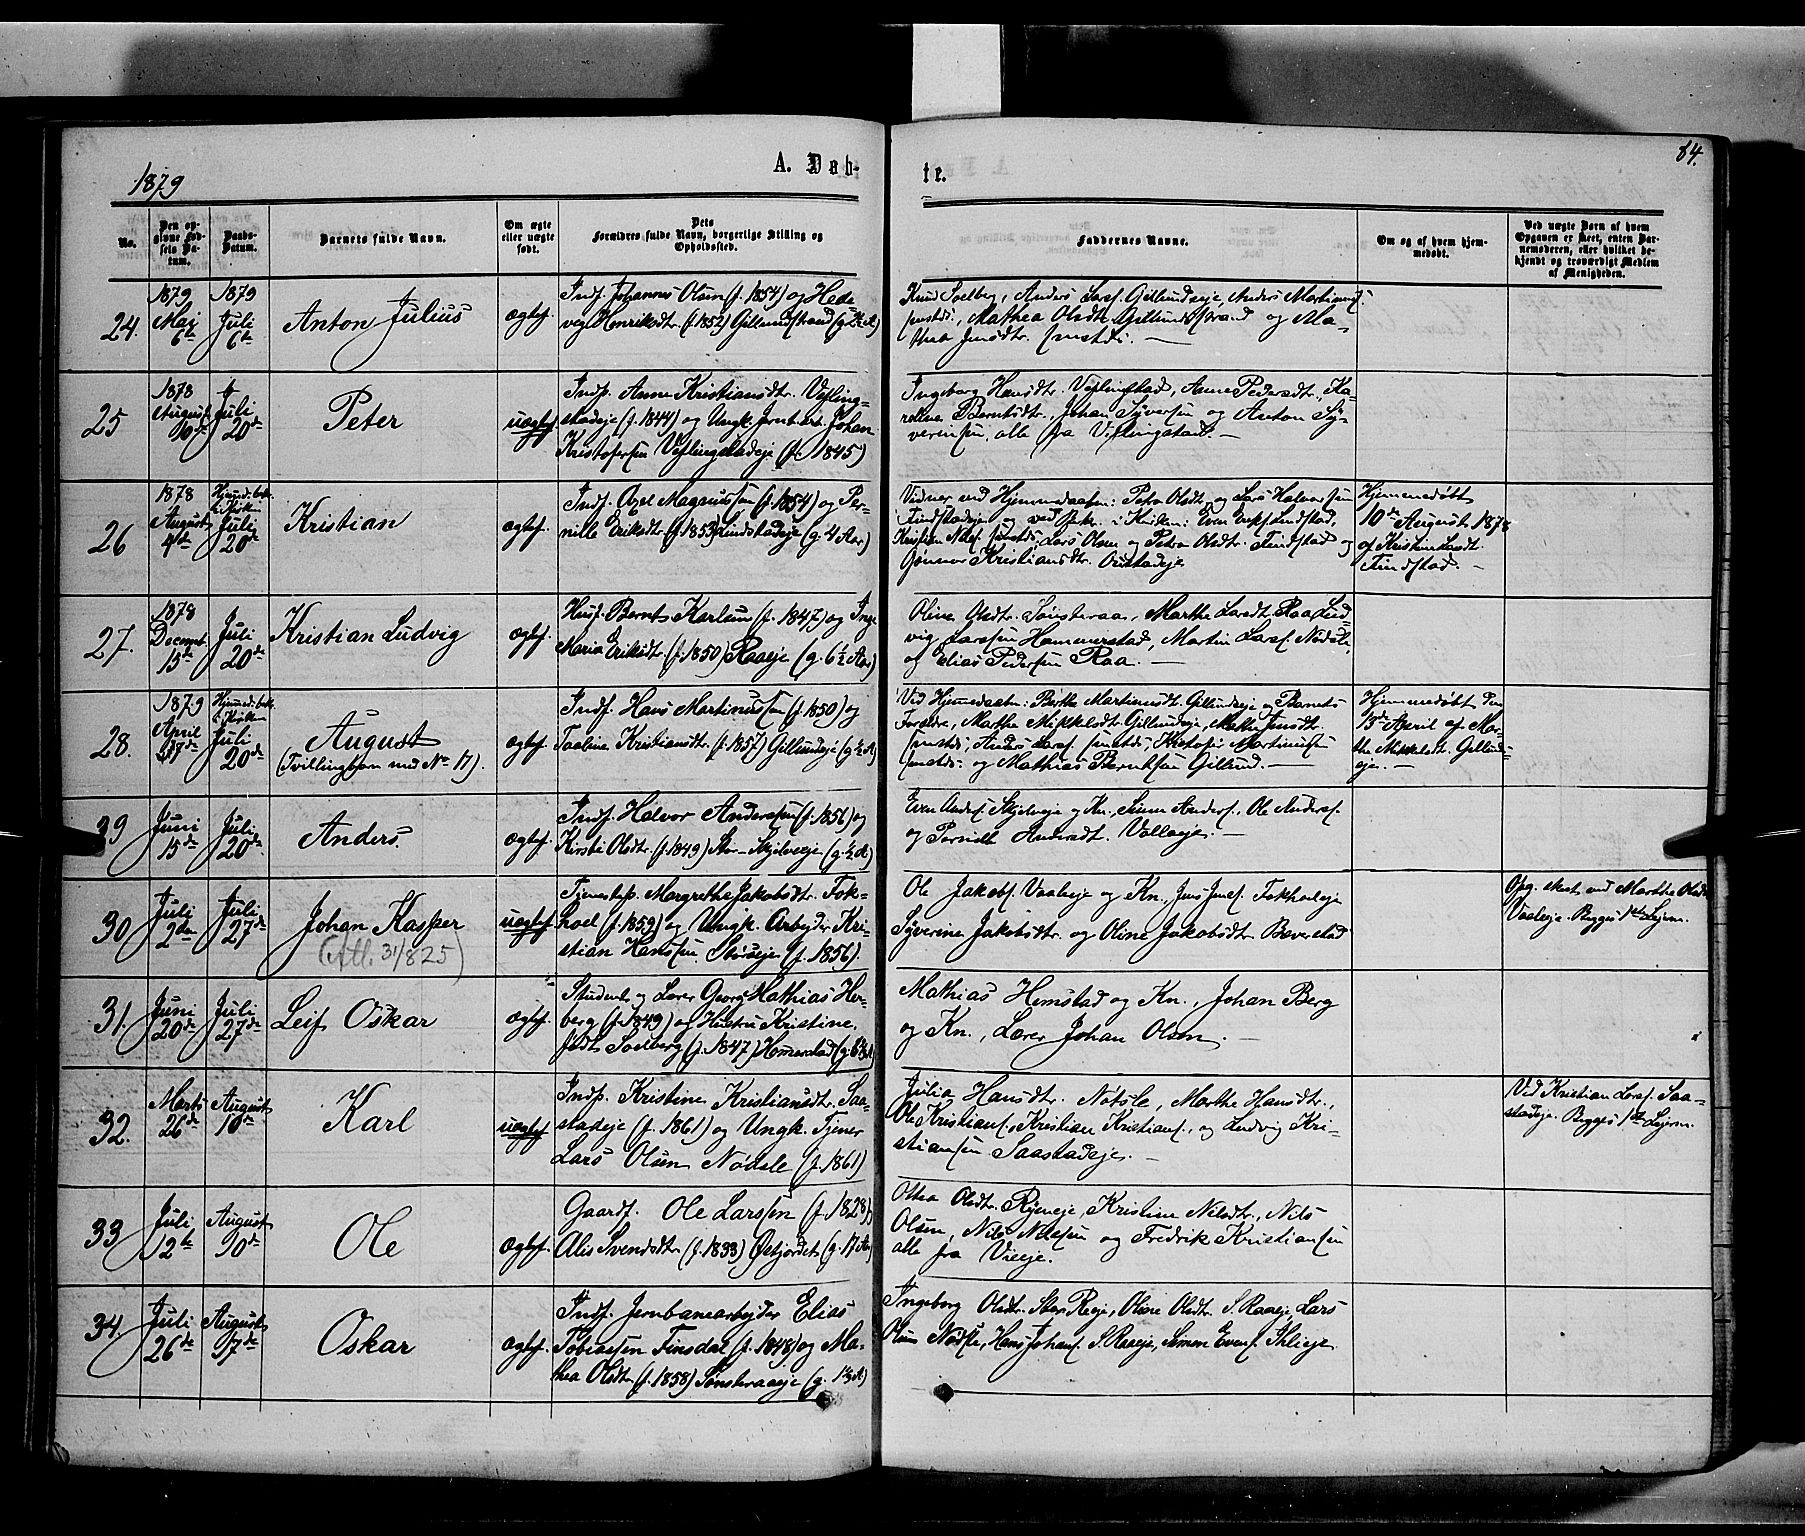 1879
A. Døb-
te.
84.
No.
Den op-
givne Fød-
sels Da-
tum.
Daabs-
Datum.
Barnets fulde Navn.
Om ægte
eller uægte
født.
Dets
Forældres fulde Navn, borgerlige Stilling og
Opholdssted.
Faddernes Navne.
Om og af hvem hjem-
medøbt.
Ved uægte Børn af hvem
Opgaven er skeet, enten Bar-
nemoderen, eller hvilket be-
kjendt og troværdigt Medlem
af Menigheden.
24.
1879
Maj
6te
1879
Juli
6te
Anton Julius
ægtef.
Indf. Johannes Olsen (f. 1854) og Hede-
vig Henriksdtr. (f. 1852) Gillundstrand
Knud Solberg, Anders Larsf. Gillundseje, Anders Martinusf.
smstds, Mathea Olsdtr. Gillundstrand og Ma-
thea Jensdtr. smstds. —
25
1878
August
Juli
20de
Peter
uægtef.
Indp. Anne Kristiansdtr. Vesling-
stadeje (f. 1844) og Ungk. Johan
Kristofersen Veslingstadeje (f. 1845)
Ingeborg Hansdtr. Anne Pedersdtr., Ka-
Berntsdtr., Johan Syversen og Anton Sy-
versen, alle fra
26
1878
August
4de
Juli
20de
Kristian
ægtef.
Indf. Axel Magnussen (f. 1854) og Per-
nille Eriksdtr. (f. 1853) (g. 4 Aar)
Vidner ved Hjemmedaaben: Petra Olsdtr. og Lars Halvorsen
Findstadeje og ved Bekr. i Kirken: Even
smstds, Lars Olsen og Petra Olsdtr. Findstad og
Gunnor Kristiansdtr.
Hjemmedøbt
10de August 1878
af Kristine Larsdt.
Findstad. —
27.
1878
Decembr
15de
Juli
20de
Kristian Ludvig
ægtef.
Husf. Bernt Karlsen (f. 1847) og Inge
Maria Eriksdtr. (f. 1850) Raaeje (g. 6½ Aar)
Oline Olsdtr. Sønsteraa, Marthe Larsdt. Raa, Lud-
vig Larssen Hammerstad, Martin Larsf. Nødsle,
og Elias Pedersen Raa. —
28.
1879
April
Hjemd. bekr.
i Kirken
Juli
20de
August
(Tvillingbarn med No 17).
ægtef.
Indf. Hans Martinussen (f. 1850) og
Kristiansdtr. (f. 1857) Gillundseje (g. ½ A)
Ved Hjemmedaaben: Berthe Martinusdt. Gillundseje og Barnets
Forældre, Marthe Mikkelsdt. Gillundseje, Jensdt.
smstds, Anders Larsf. smstds, Kristofer Martinussen
smstds. og Mathias Berntsen Gillund. —
Hjemmedøbt den
April af Mar-
the Mikkelsdt. Gillunds-
eje. —
Juni
15de
Juli
20de
Anders
ægtef.
Indf. Halvor Anderssen (f. 1856) og
Kirsti Olsdtr. (f. 1849) Stor-Skjelveeje (g. ½ A)
Even Andersf. Skjelveeje og Kn., Andersf., Ole Andersf.
og Pernille Andersdt. —
30
Juli
2den
Juli
27de
Johan Kasper
(All. 31/825)
uægtef.
Tjenestep. Margrethe Jakobsdtr. Fok-
hoel (f. 1859) og Ungk. Arbejder Kri-
stian Hanssen (f. 1856).
Ole Jakobsf. Vaaleeje og Kn., Jens Jensf. Fokhoeleje
Syverine Jakobsdtr. og Oline Jakobsdtr. Beverstad
Opg. skeet ved Marthe Olsdt.
Vaaleeje. Begges 1ste Lejerm.
31.
Juni
20de
Juli
27de
Leif Oskar
ægtef.
Student og Lærer Georg Mathias Her-
berg (f. 1849) og Hustru Kristine
født Solberg (f. 1847)
Mathias Hemstad og Kn., Johan Berg
og Kn., Lærer Johan Olsen. —
32.
Marts
26de
August
10de
Karl
uægtef.
Indp. Kristine Kristiansdtr. Saa-
stadeje (f. 1861) og Ungk. Tjener
Lars Olsen Nødsle (f. 1861)
Julia Hansdtr. Nødsle, Marthe Hansdtr.,
Ole Kristiansf., Kristian Kristiansf., og Ludvig Kri-
stiansen Saastadeje. —
Ved Kristian Larsf. Saa-
stadeje. Begges 1ste Lejerm.
33
Juli
12te
August
10de
Ole
ægtef.
Gaardf. Ole Larssen (f. 1828)
Svendsdtr. (f. 1833) (g. 17 Aar)
Olsdtr. Kristine Nilsdtr., Nils
Olsen, Nils Nilssen og Fredrik Kristiansen
alle fra Vieeje.
34.
Juli
26de
August
17de
Oskar
ægtef.
Indf. Jernbanearbejder Elias
Tobiassen Finsdal (f. 1848) og Ma-
thea Olsdtr. (f. 1858) Sønsteraaeje
Ingeborg Olsdtr. Oline Olsdtr. S. Raaeje, Lars
Olsen Nødsle, Hans Johansf. S. Raaeje, Simen Evensf.